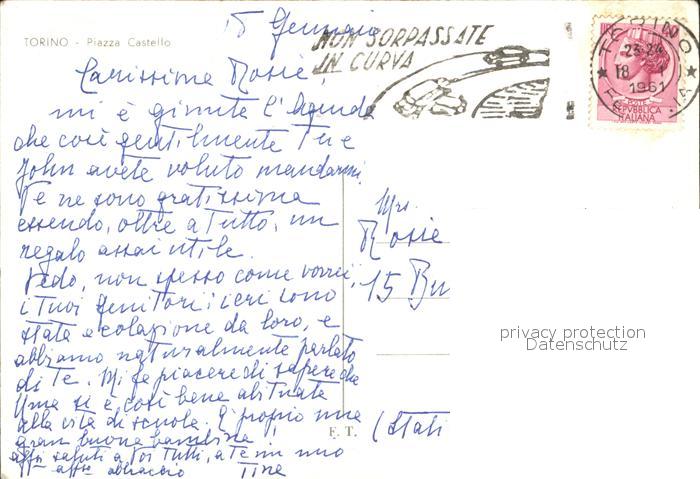 TORINO - Piazza Castello
18 Gennaio
NON SORPASSATE
IN CURVA
TORINO
FERROVIA
23-24
18 1
1961
POSTE
REPVBBLICA
ITALIANA
Carissima Rosie,
mi è giunta l'Agenda
che così gentilmente Tu e
John avete voluto mandarmi.
Te ne sono gratissima
essendo, oltre a Tutto, un
regalo assai utile.
Vedo, non spesso come vorrei,
i Tuoi genitori; ieri sono
stata a colazione da loro, e
abbiamo naturalmente parlato
di Te. Mi fa piacere di sapere che
si è così bene abituata
alla vita di scuola. È proprio una
gran buona bambina.
affti saluti a Voi Tutti, a Te un mio
affto abbraccio Tina
Mrs.
Rosie
15 Bu
(Stati
F. T.
privacy protection
Datenschutz